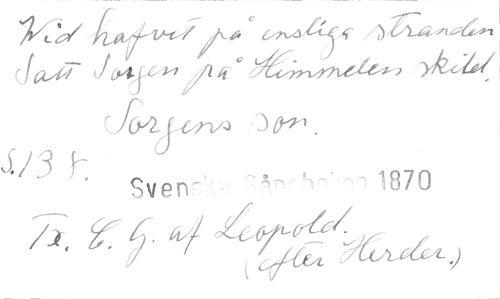 Wid hafvet på ensliga stranden
Satt Sorgen på Himmelen skild.
Sorgens son.
S. 138.
Svenska Sångboken 1870
Tx. C. G. af Leopold.
(efter Herder.)